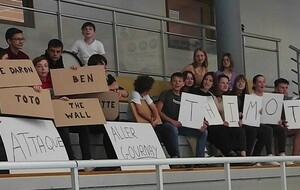 E DARON
BEN
TOTO
THE
WALL
ATTAQUE
ALLER
GOURNAY
TIMOT